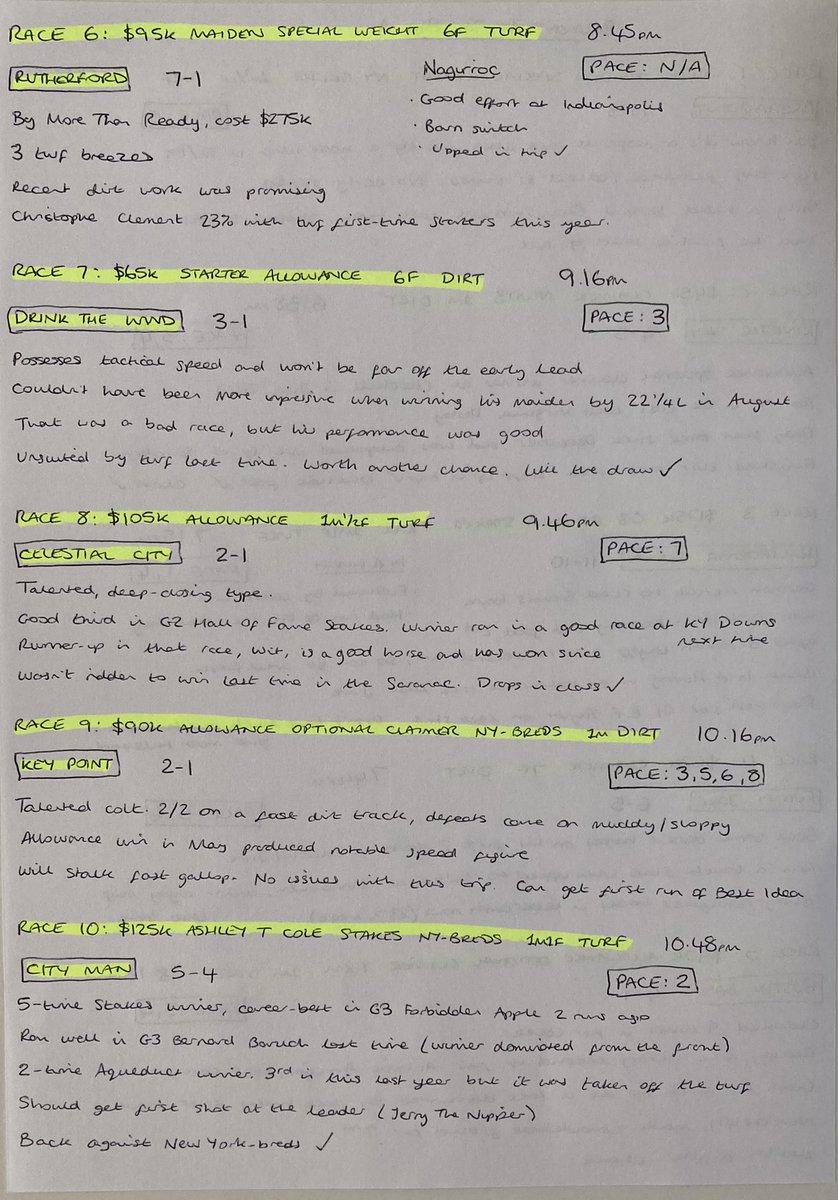 RACE 6: $95K MAIDEN SPECIAL WEIGHT 6F TURF 8.45pm
RUTHERFORD 7-1 Nagirroc PACE: N/A
· Good effort at Indianapolis
By More Than Ready, cost $275K · Barn switch
3 turf breezes · Upped in trip ✓
Recent dirt work was promising
Christophe Clement 23% with turf first-time starters this year.
RACE 7: $65K STARTER ALLOWANCE 6F DIRT 9.16pm
DRINK THE WIND 3-1 PACE: 3
Possesses tactical speed and won't be far off the early lead
Couldn't have been more impressive when winning his maiden by 22 1/4L in August
That was a bad race, but his performance was good
Unsuited by turf last time. Worth another chance. Like the draw ✓
RACE 8: $105K ALLOWANCE 1m 1/2F TURF 9.46pm
CELESTIAL CITY 2-1 PACE: 7
Talented, deep-closing type.
Good third in G2 Hall of Fame Stakes. Winner ran in a good race at KY Downs next time
Runner-up in that race, Wit, is a good horse and has won since
Wasn't ridden to win last time in the Saranac. Drops in class ✓
RACE 9: $90K ALLOWANCE OPTIONAL CLAIMER NY-BREDS 1M DIRT 10.16pm
KEY POINT 2-1 PACE: 3,5,6,8
Talented colt. 2/2 on a fast dirt track, defeats came on muddy/sloppy
Allowance win in May produced notable speed figure
Will stalk fast gallop. No issues with this trip. Can get first run of Best Idea
RACE 10: $125K ASHLEY T COLE STAKES NY-BREDS 1M1F TURF 10.48pm
CITY MAN 5-4 PACE: 2
5-time Stakes winner, career-best in G3 Forbidden Apple 2 runs ago
Ran well in G3 Bernard Baruch last time (winner dominated from the front)
2-time Aqueduct winner. 3rd in this last year but it was taken off the turf
Should get first shot at the leader (Jerry The Nipper)
Back against New York-breds ✓